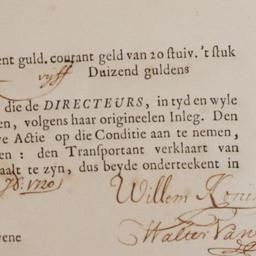 ent guld. courant geld van 20 stuiv. 't stuk
vyff Duizend guldens
die de DIRECTEURS, in tyd en wyle
en, volgens haar origineelen Inleg. Den
ve Actie op die Conditie aan te nemen,
en: den Transportant verklaart van
aalt te zyn, dus beyde onderteekent in
1720
Willem Konin
Walter Van
vene